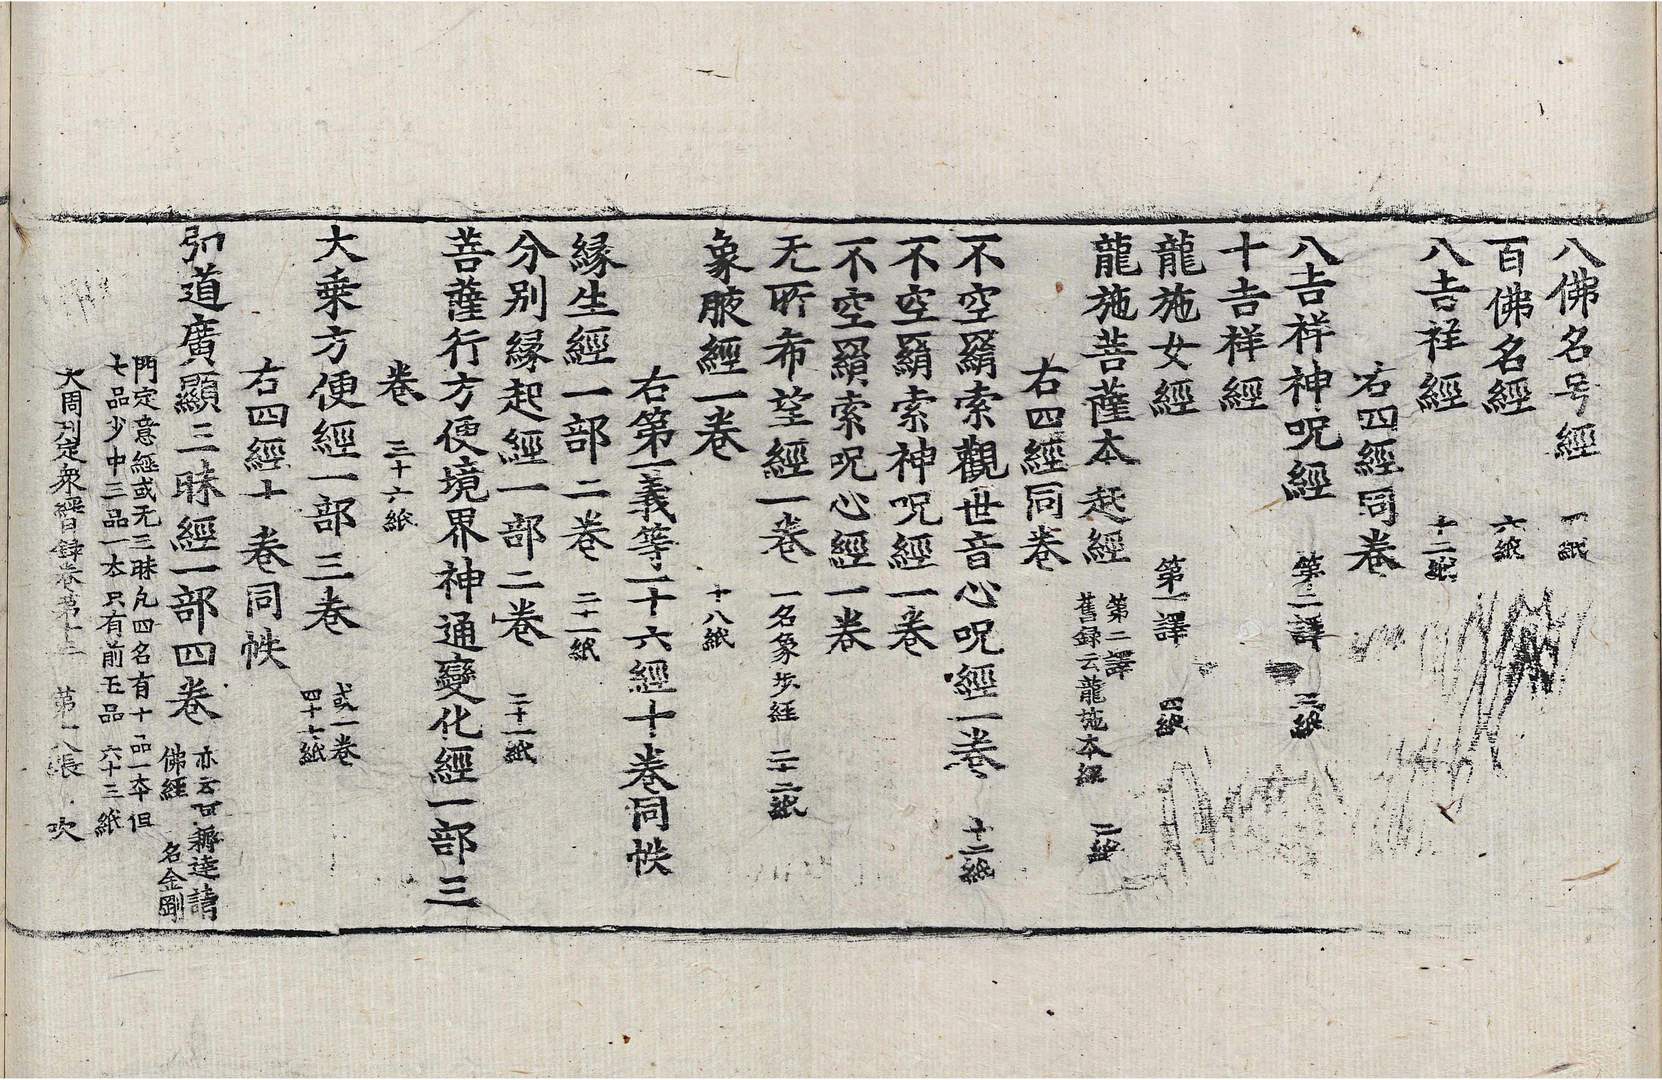 八佛名号經 一紙
百佛名經 六紙
八吉祥經 十二紙
右四經同卷
八吉祥神呪經 第二譯 三紙
十吉祥經
龍施女經 第一譯 四紙
龍施菩薩本起經 第二譯 舊録云龍施本經 二紙
右四經同卷
不空羂索觀世音心呪經一卷 十二紙
不空羂索神呪經一卷
不空羂索呪心經一卷
无所希望經一卷 一名象步經 二十二紙
象腋經一卷 十八紙
右第一義等一十六經十卷同帙
縁生經一部二卷 二十一紙
分别縁起經一部二卷 二十一紙
菩薩行方便境界神通變化經一部三
卷 三十六紙
大乗方便經一部三卷 或一卷 四十七紙
右四經十卷同帙
弘道廣顯三昧經一部四卷 亦云阿耨達請佛經 名金剛
門定意經或无三昧凢四名有十二品一本但
七品少中三品一本只有前五品 六十三紙
大周刊定衆經目録卷第十三 第二張 吹